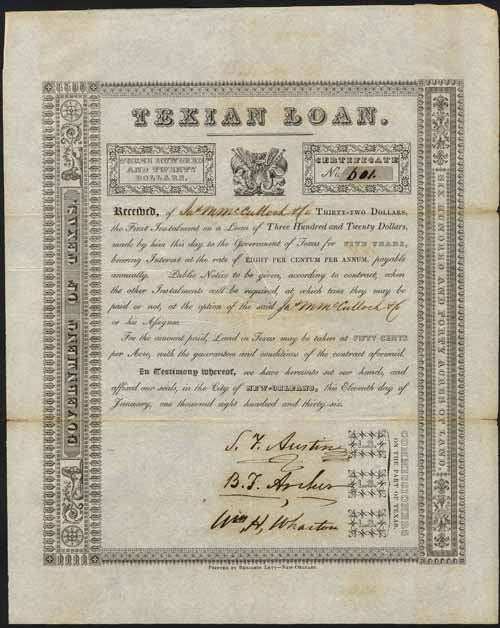 TEXIAN LOAN.
THREE HUNDRED
AND TWENTY
DOLLARS.
CERTIFICATE
No. 601.
GOVERNMENT OF TEXAS.
SIX HUNDRED AND FORTY ACRES OF LAND.
Received, of Jas M McCulloch &Co THIRTY-TWO DOLLARS,
the First Instalment on a Loan of Three Hundred and Twenty Dollars,
made by him this day to the Government of Texas for FIVE YEARS,
bearing Interest at the rate of EIGHT PER CENTUM PER ANNUM, payable
annually. Public Notice to be given, according to contract, when
the other Instalments will be required, at which time they may be
paid or not, at the option of the said Jas M McCulloch &Co
or his Assignee.
For the amount paid, Land in Texas may be taken at FIFTY CENTS
per Acre, with the guarantee and conditions of the contract aforesaid.
In Testimony whereof, we have hereunto set our hands, and
affixed our seals, in the City of NEW-ORLEANS, this Eleventh day of
January, one thousand eight hundred and thirty-six.
S. F. Austin
L.S.
B. T. Archer
L.S.
Wm H, Wharton
L.S.
COMMISSIONERS
ON THE PART OF TEXAS.
PRINTED BY BENJAMIN LEVY—NEW-ORLEANS.